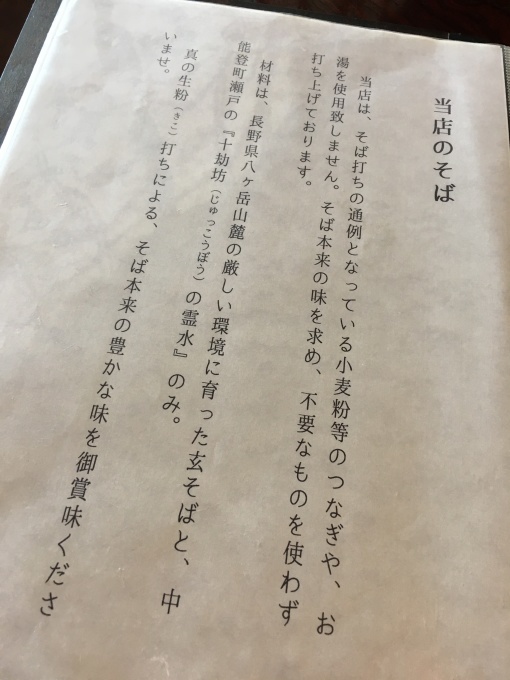 当店のそば
当店は、そば打ちの通例となっている小麦粉等のつなぎや、お
湯を使用致しません。そば本来の味を求め、不要なものを使わず
打ち上げております。
材料は、長野県八ヶ岳山麓の厳しい環境に育った玄そばと、中
能登町瀬戸の『十劫坊（じゅっこうぼう）の霊水』のみ。
真の生粉（きこ）打ちによる、そば本来の豊かな味を御賞味くださ
いませ。